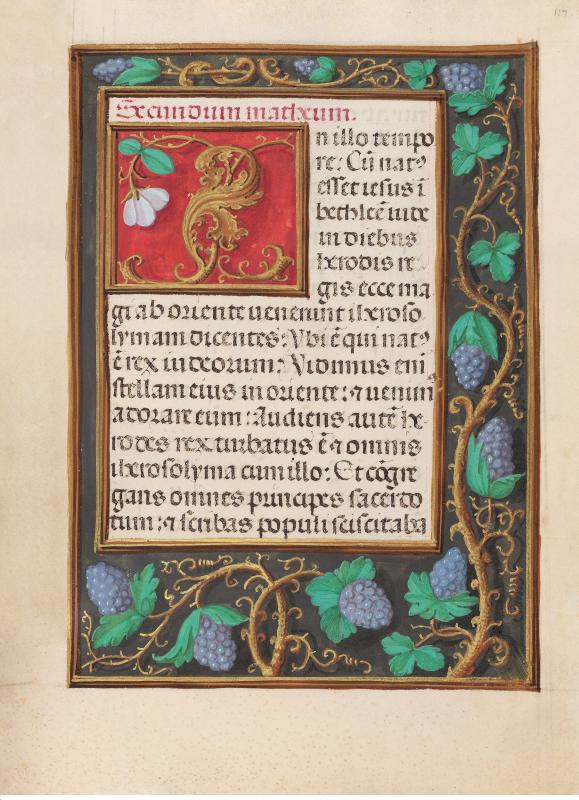 Secundum matheum.
In illo tempo
re: Cū nat⁹
esset iesus ī
bethleē iude
in diebus
herodis re
gis ecce ma
gi ab oriente uenerunt iheroso
lymam dicentes: Vbi ē qui nat⁹
ē rex iudeorum: Vidimus eni
stellam eius in oriente: ⁊ uenim⁹
adorare eum: Audiens autē he
rodes rex turbatus ē ⁊ omnis
iherosolyma cum illo: Et cōgre
gans omnes principes sacerdo
tum: ⁊ scribas populi sciscitaba